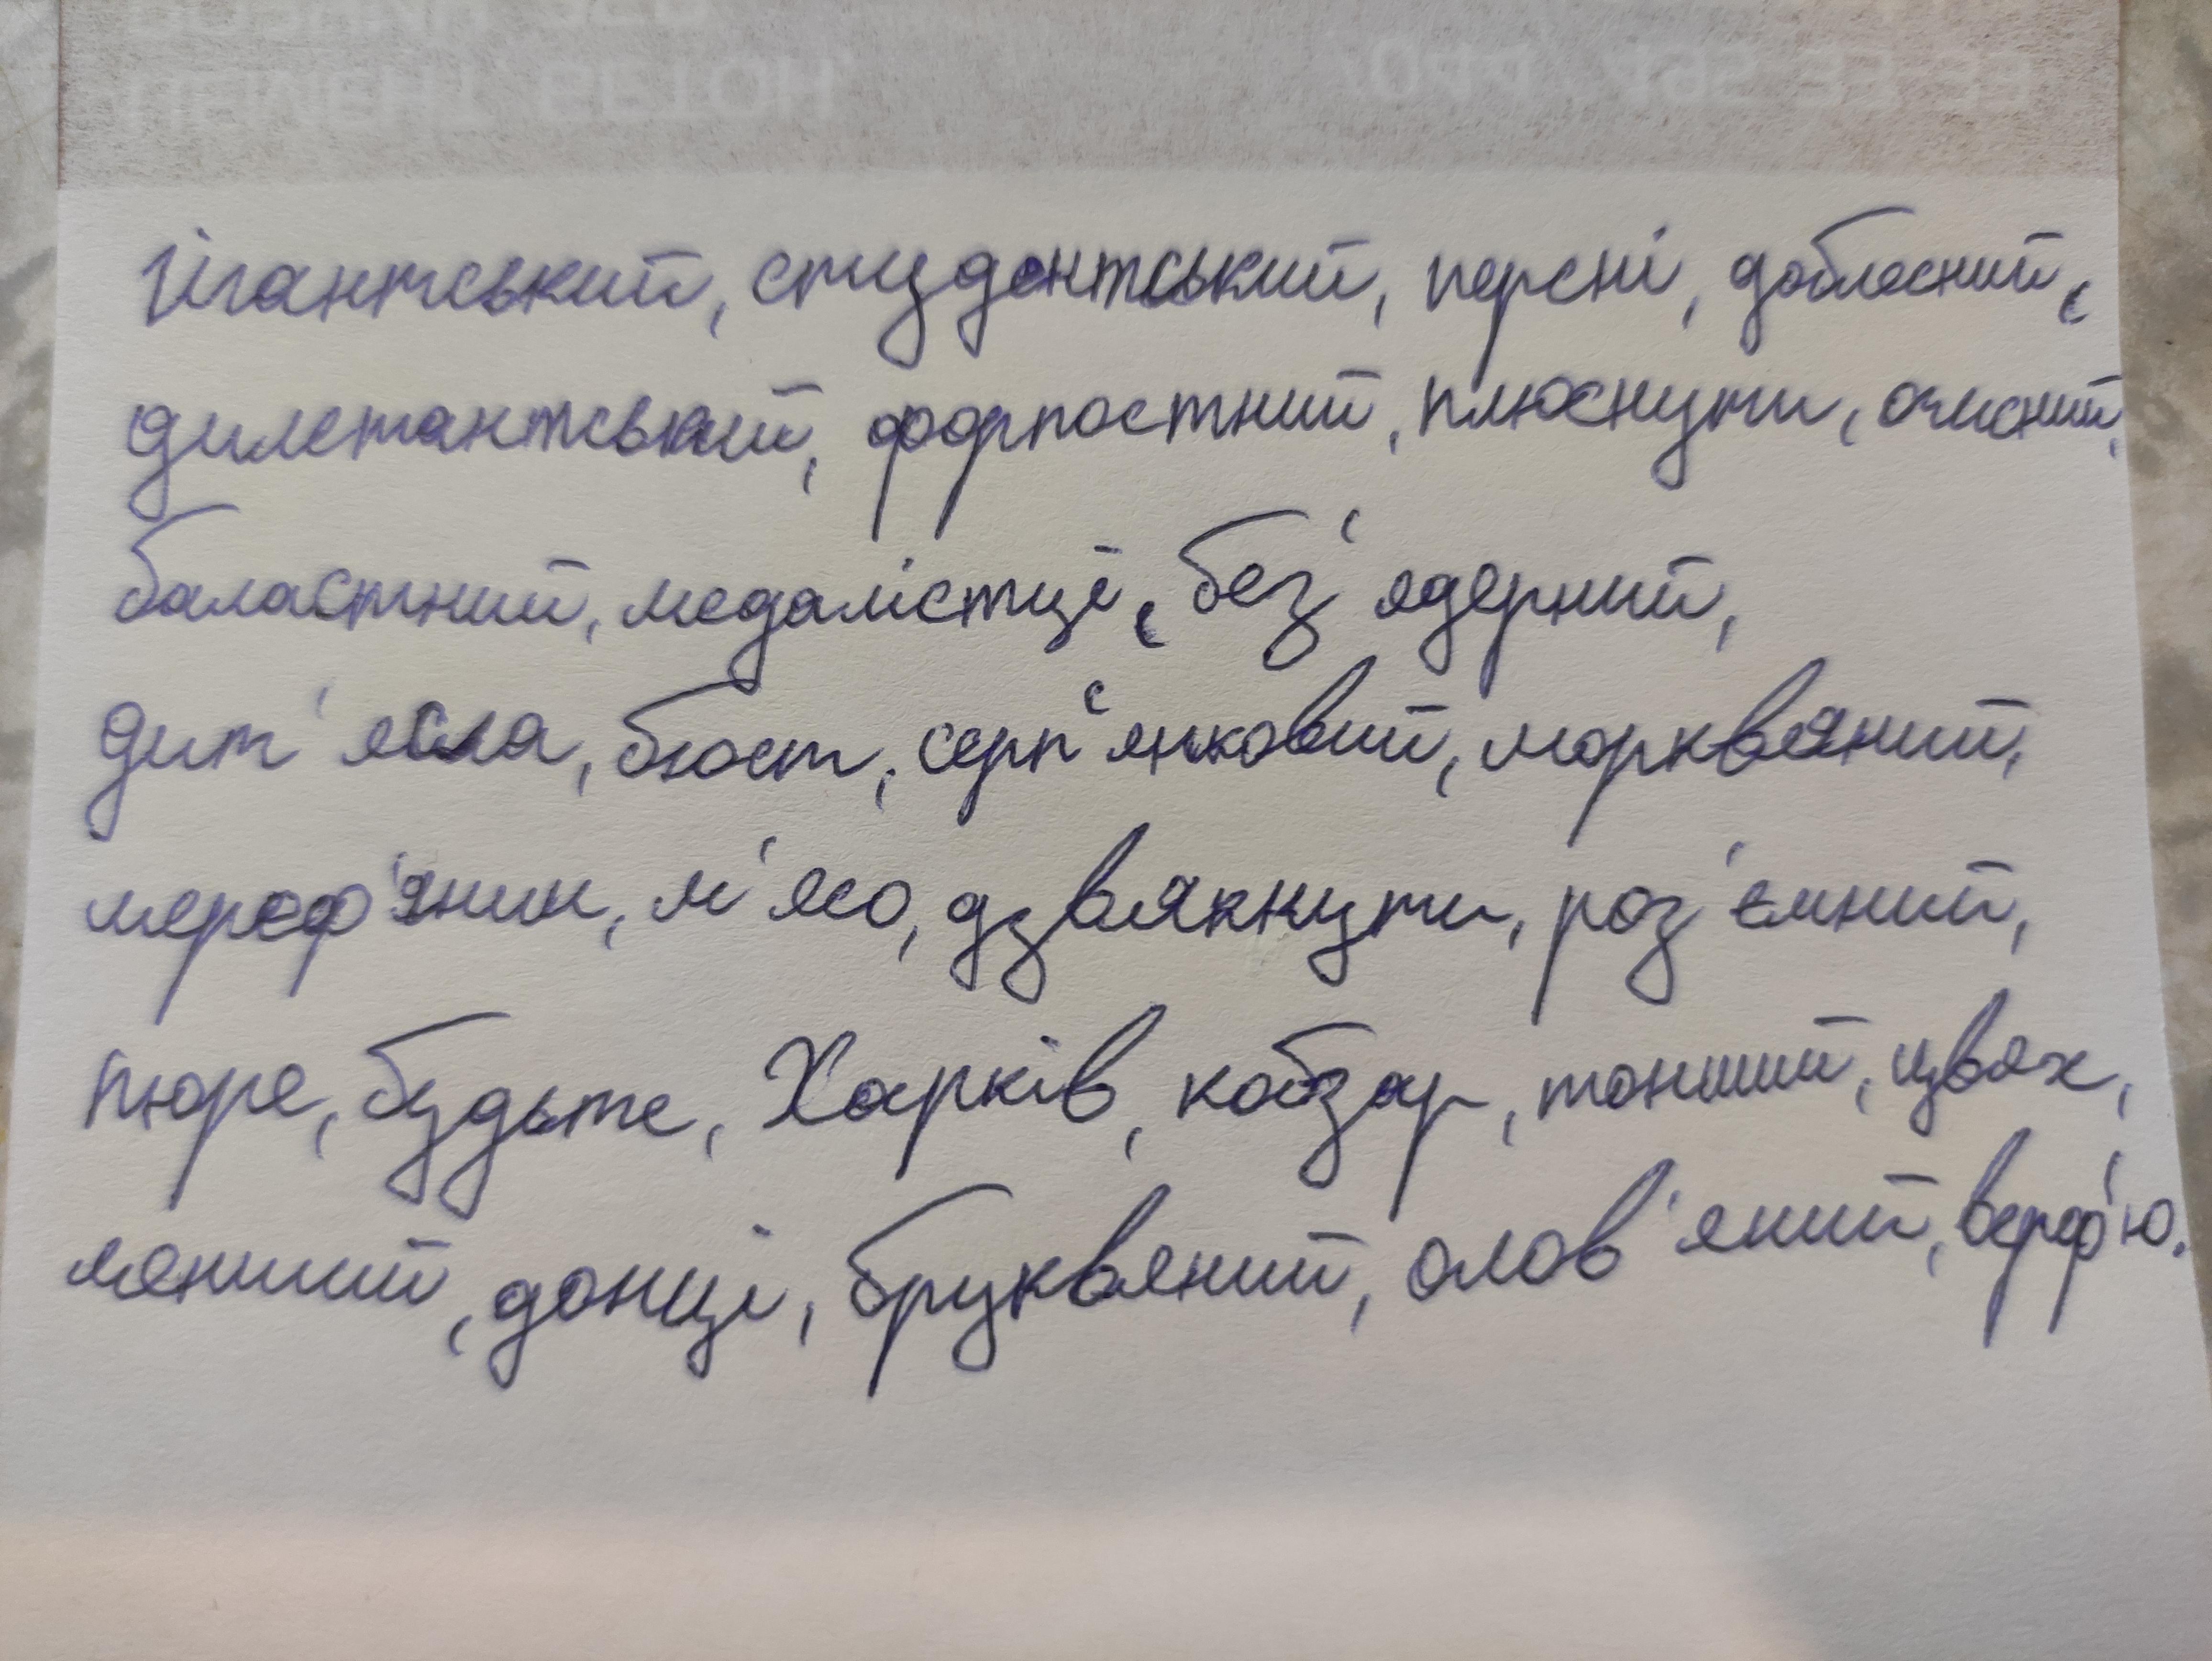 гігантський, студентський, персні, доблесний,
дилетантський, форпостний, плюснути, очисний,
баластний, медалістці, без'ядерний,
дит'ясла, бюст, серп'янковий, морквяний,
мереф'янин, м'ясо, дзвякнути, роз'ємний,
пюре, будьте, Харків, кобзар, тонший, цвях,
менший, донці, бруквяний, олов'яний, верф'ю.